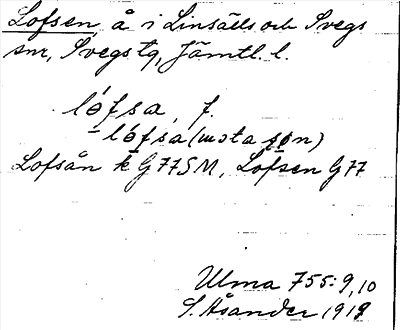 Lofsen, å i Linsälls och Svegs
snr, Svegs tg, Jämtl. l.
lófsa, f.
lófsa (mɔta sǫn)
Lofsån k G77SM, Lofsen G77
Ulma 755:9,10
S. Åsander 1918